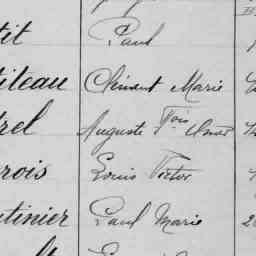 tit Paul
iteau Clément Marie
rel Auguste Fois Aimé
rois Louis Victor
tinier Paul Marie